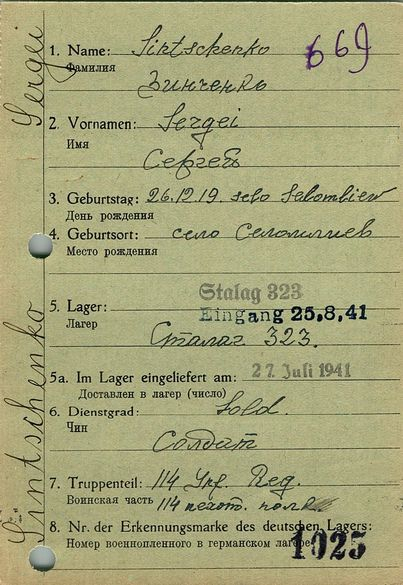 Sergei Sintschenko
1. Name: Sintschenko 669
Фамилия
Зинченко
2. Vornamen: Sergei
Имя
Сергей
3. Geburtstag: 26.12.19. selo
День рождения
4. Geburtsort: село
Место рождения
Stalag 323
5. Lager: Eingang 25.8.41
Лагер
Сталаг 323.
5a. Im Lager eingeliefert am: 27. Juli 1941
Доставлен в лагер (число)
6. Dienstgrad: Sold.
Чин
Солдат
7. Truppenteil: 114 Reg.
Воинская часть 114 пехот. полк
8. Nr. der Erkennungsmarke des deutschen Lagers:
Номер военнопленного в германском лагере 1025